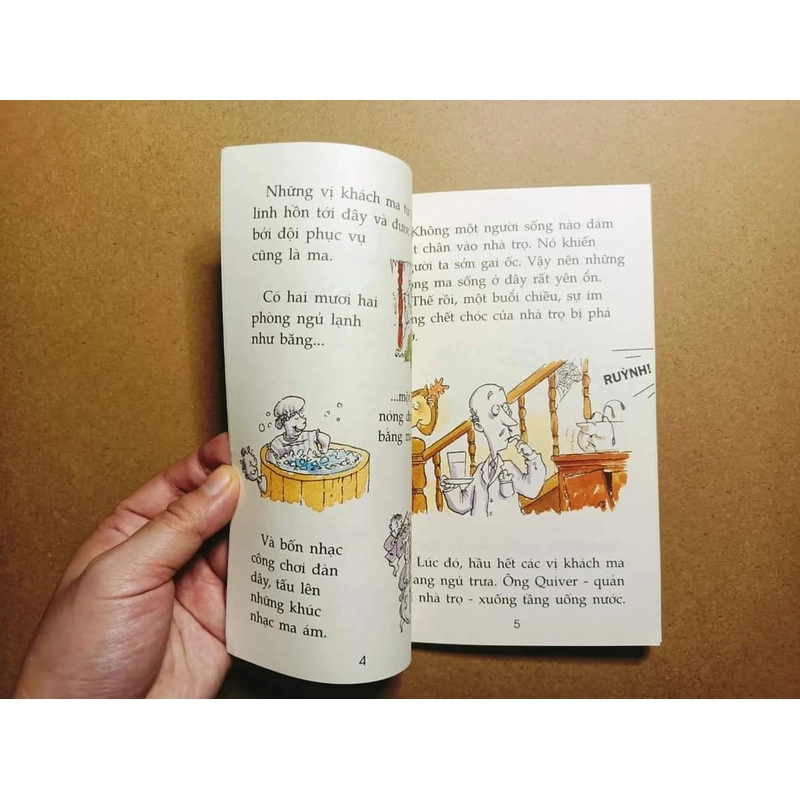 Những vị khách ma từ
linh hồn tới đây và được
bởi đội phục vụ
cũng là ma.
Có hai mươi hai
phòng ngủ lạnh
như băng...
...một
nóng
bằng
Và bốn nhạc
công chơi đàn
dây, tấu lên
những khúc
nhạc ma ám.
4
Không một người sống nào dám
chân vào nhà trọ. Nó khiến
người ta sớn gai ốc. Vậy nên những
ma sống ở đây rất yên ổn.
Thế rồi, một buổi chiều, sự im
chết chóc của nhà trọ bị phá
RUỲNH!
Lúc đó, hầu hết các vị khách ma
ngủ trưa. Ông Quiver - quản
nhà trọ - xuống tầng uống nước.
5